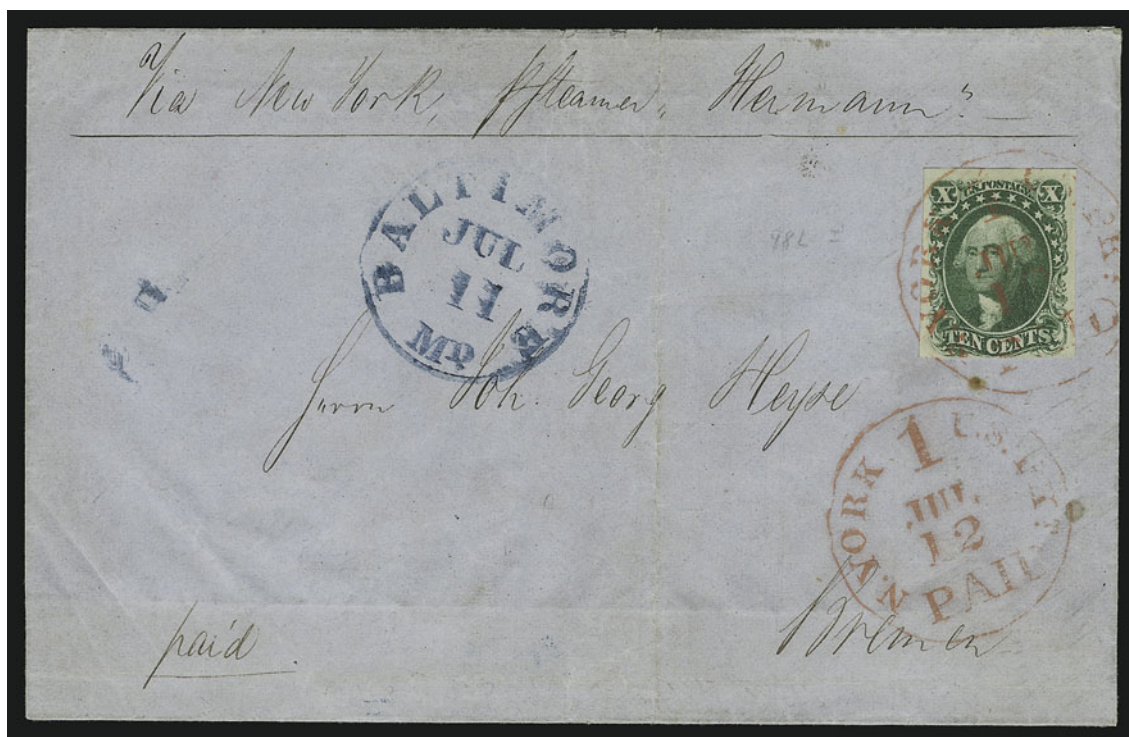 Via New York, pr Steamer „Hermann"
BALTIMORE
JUL
11
MD
X U.S. POSTAGE X
TEN CENTS
98L I
Herrn Joh. Georg Heyse
1
N. YORK U.S. PKT.
JUL
12
PAID
Bremen
paid